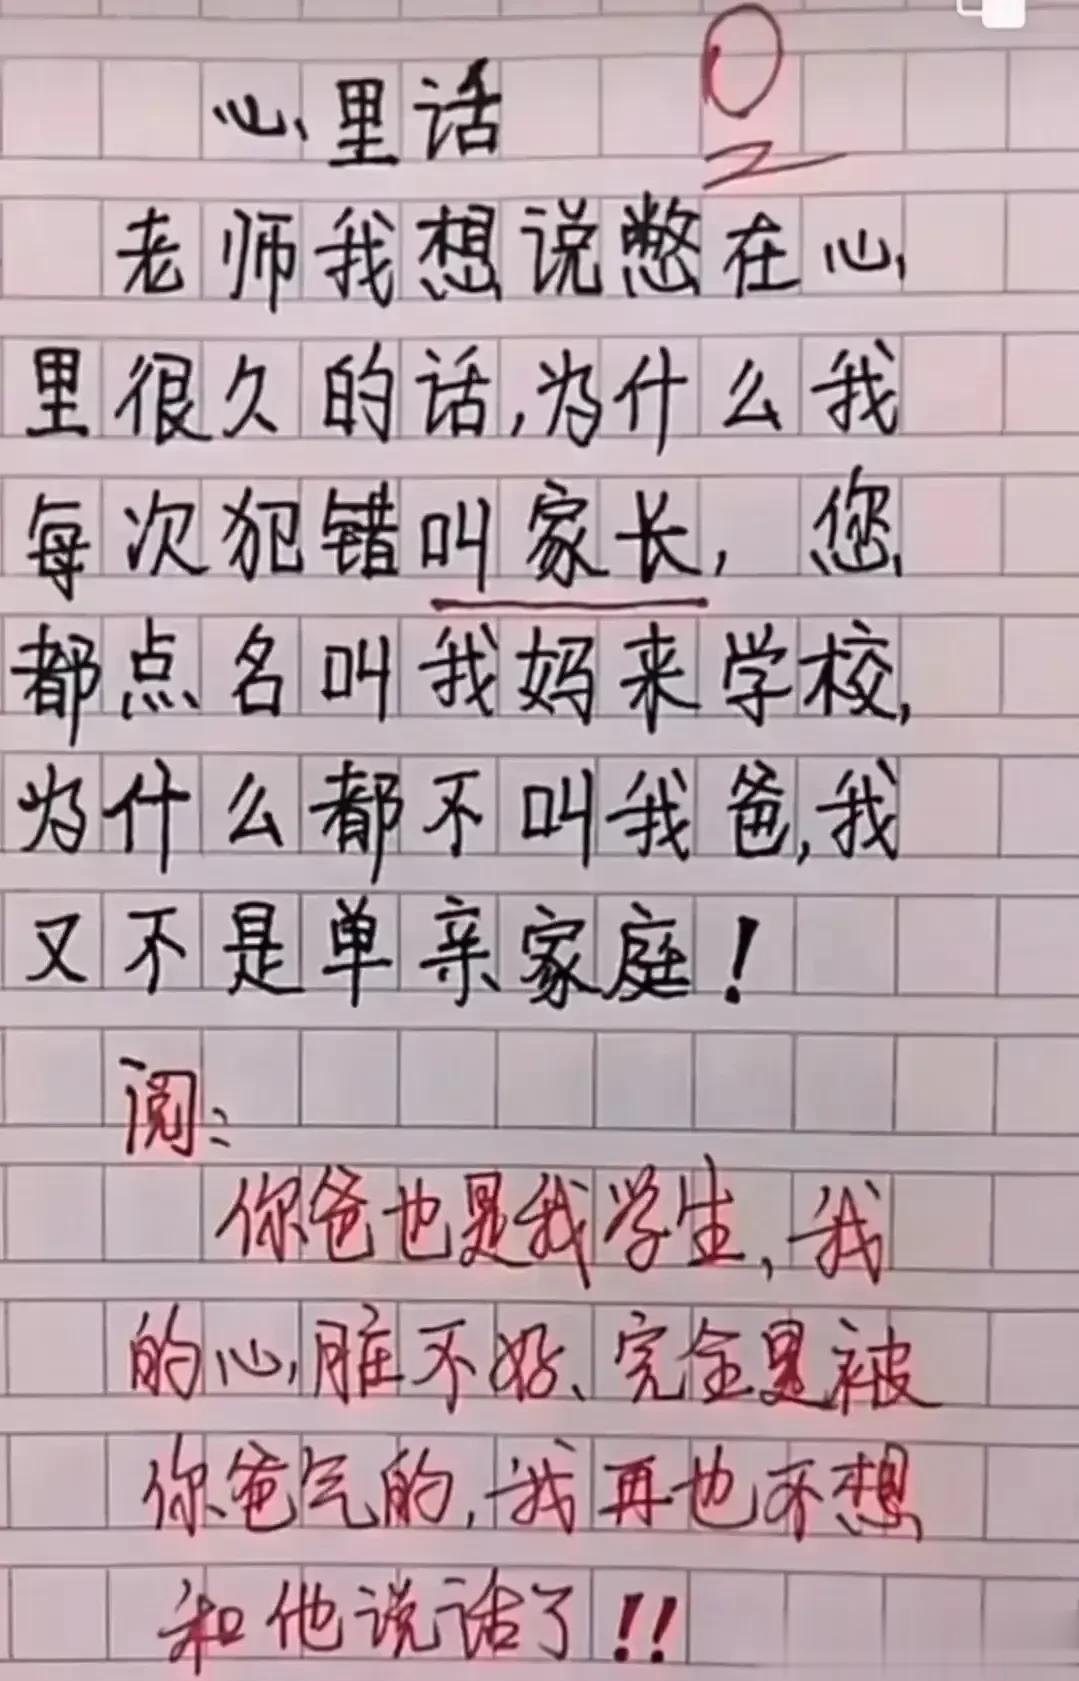 心里话
0
老师我想说憋在心
里很久的话,为什么我
每次犯错叫家长,您
都点名叫我妈来学校,
为什么都不叫我爸,我
又不是单亲家庭!
阅:
你爸也是我学生,我
的心脏不好、完全是被
你爸气的,我再也不想
和他说话了!!